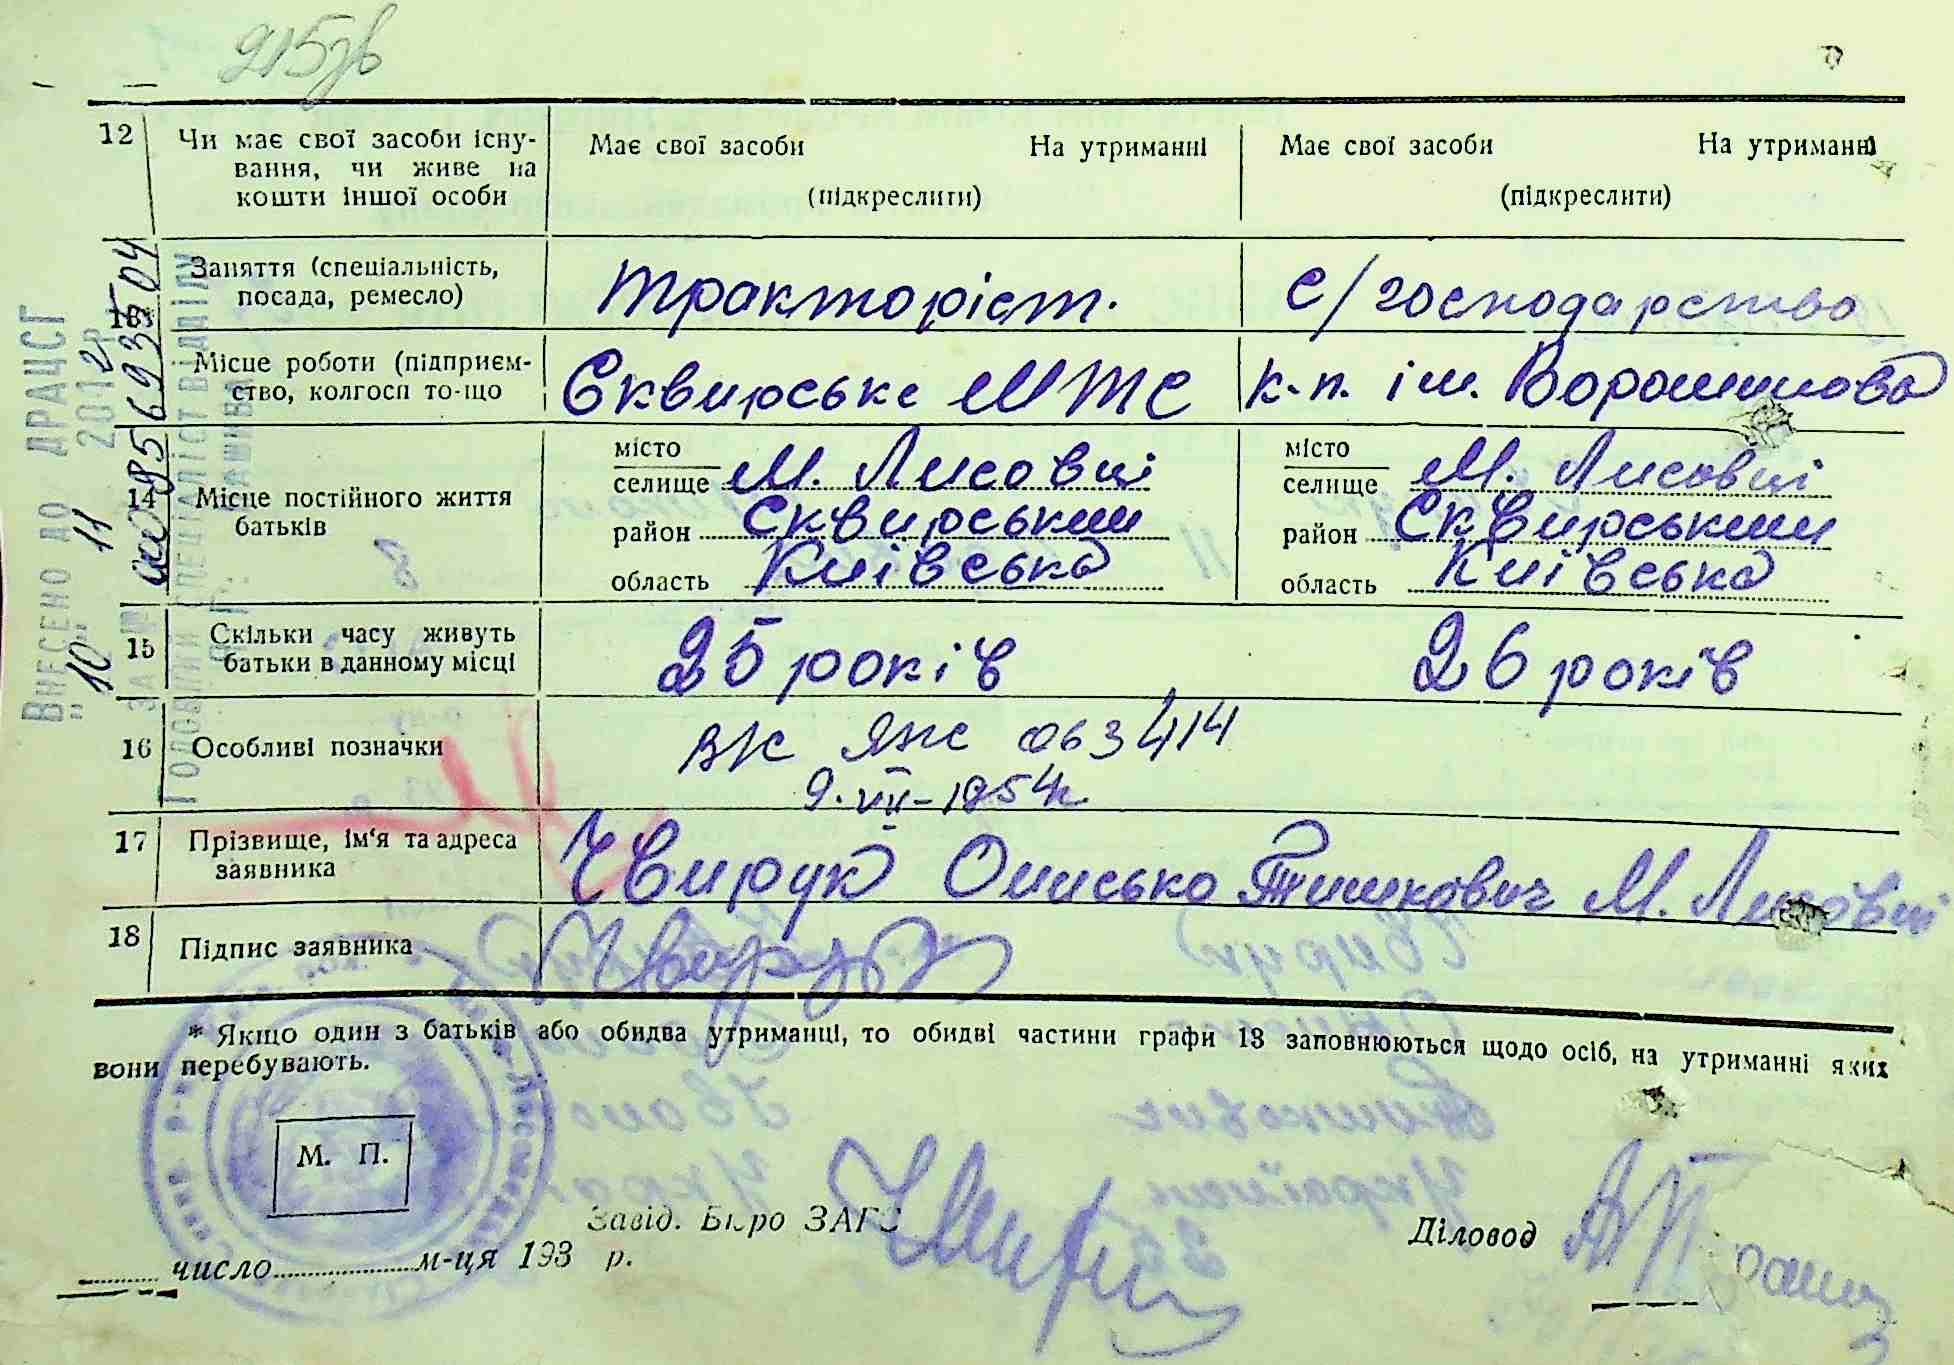 12 Чи має свої засоби існу-
вання, чи живе на
кошти іншої особи
Має свої засоби На утриманні
(підкреслити)
Має свої засоби На утриманні
(підкреслити)
13 Заняття (спеціальність,
посада, ремесло)
Тракторіст.
С/господарство
Місце роботи (підприєм-
ство, колгосп то-що
Сквирське МТС
к-п. ім. Ворошилова
14 Місце постійного життя
батьків
місто
селище М. Лисовці
район Сквирський
область Київська
місто
селище М. Лисовці
район Сквирський
область Київська
15 Скільки часу живуть
батьки в данному місці
25 років
26 років
16 Особливі позначки
063414
9.VII-1954р.
17 Прізвище, ім'я та адреса
заявника
Чвирук Онисько Тишкович М. Лисовці
18 Підпис заявника
* Якщо один з батьків або обидва утриманці, то обидві частини графи 13 заповнюються щодо осіб, на утриманні яких
вони перебувають.
М. П.
Завід. Бюро ЗАГС
Діловод
число м-ця 193 р.
Внесено до ДРАЦСГ
"10" 11 2012р.
за №
Головний спеціаліст відділу